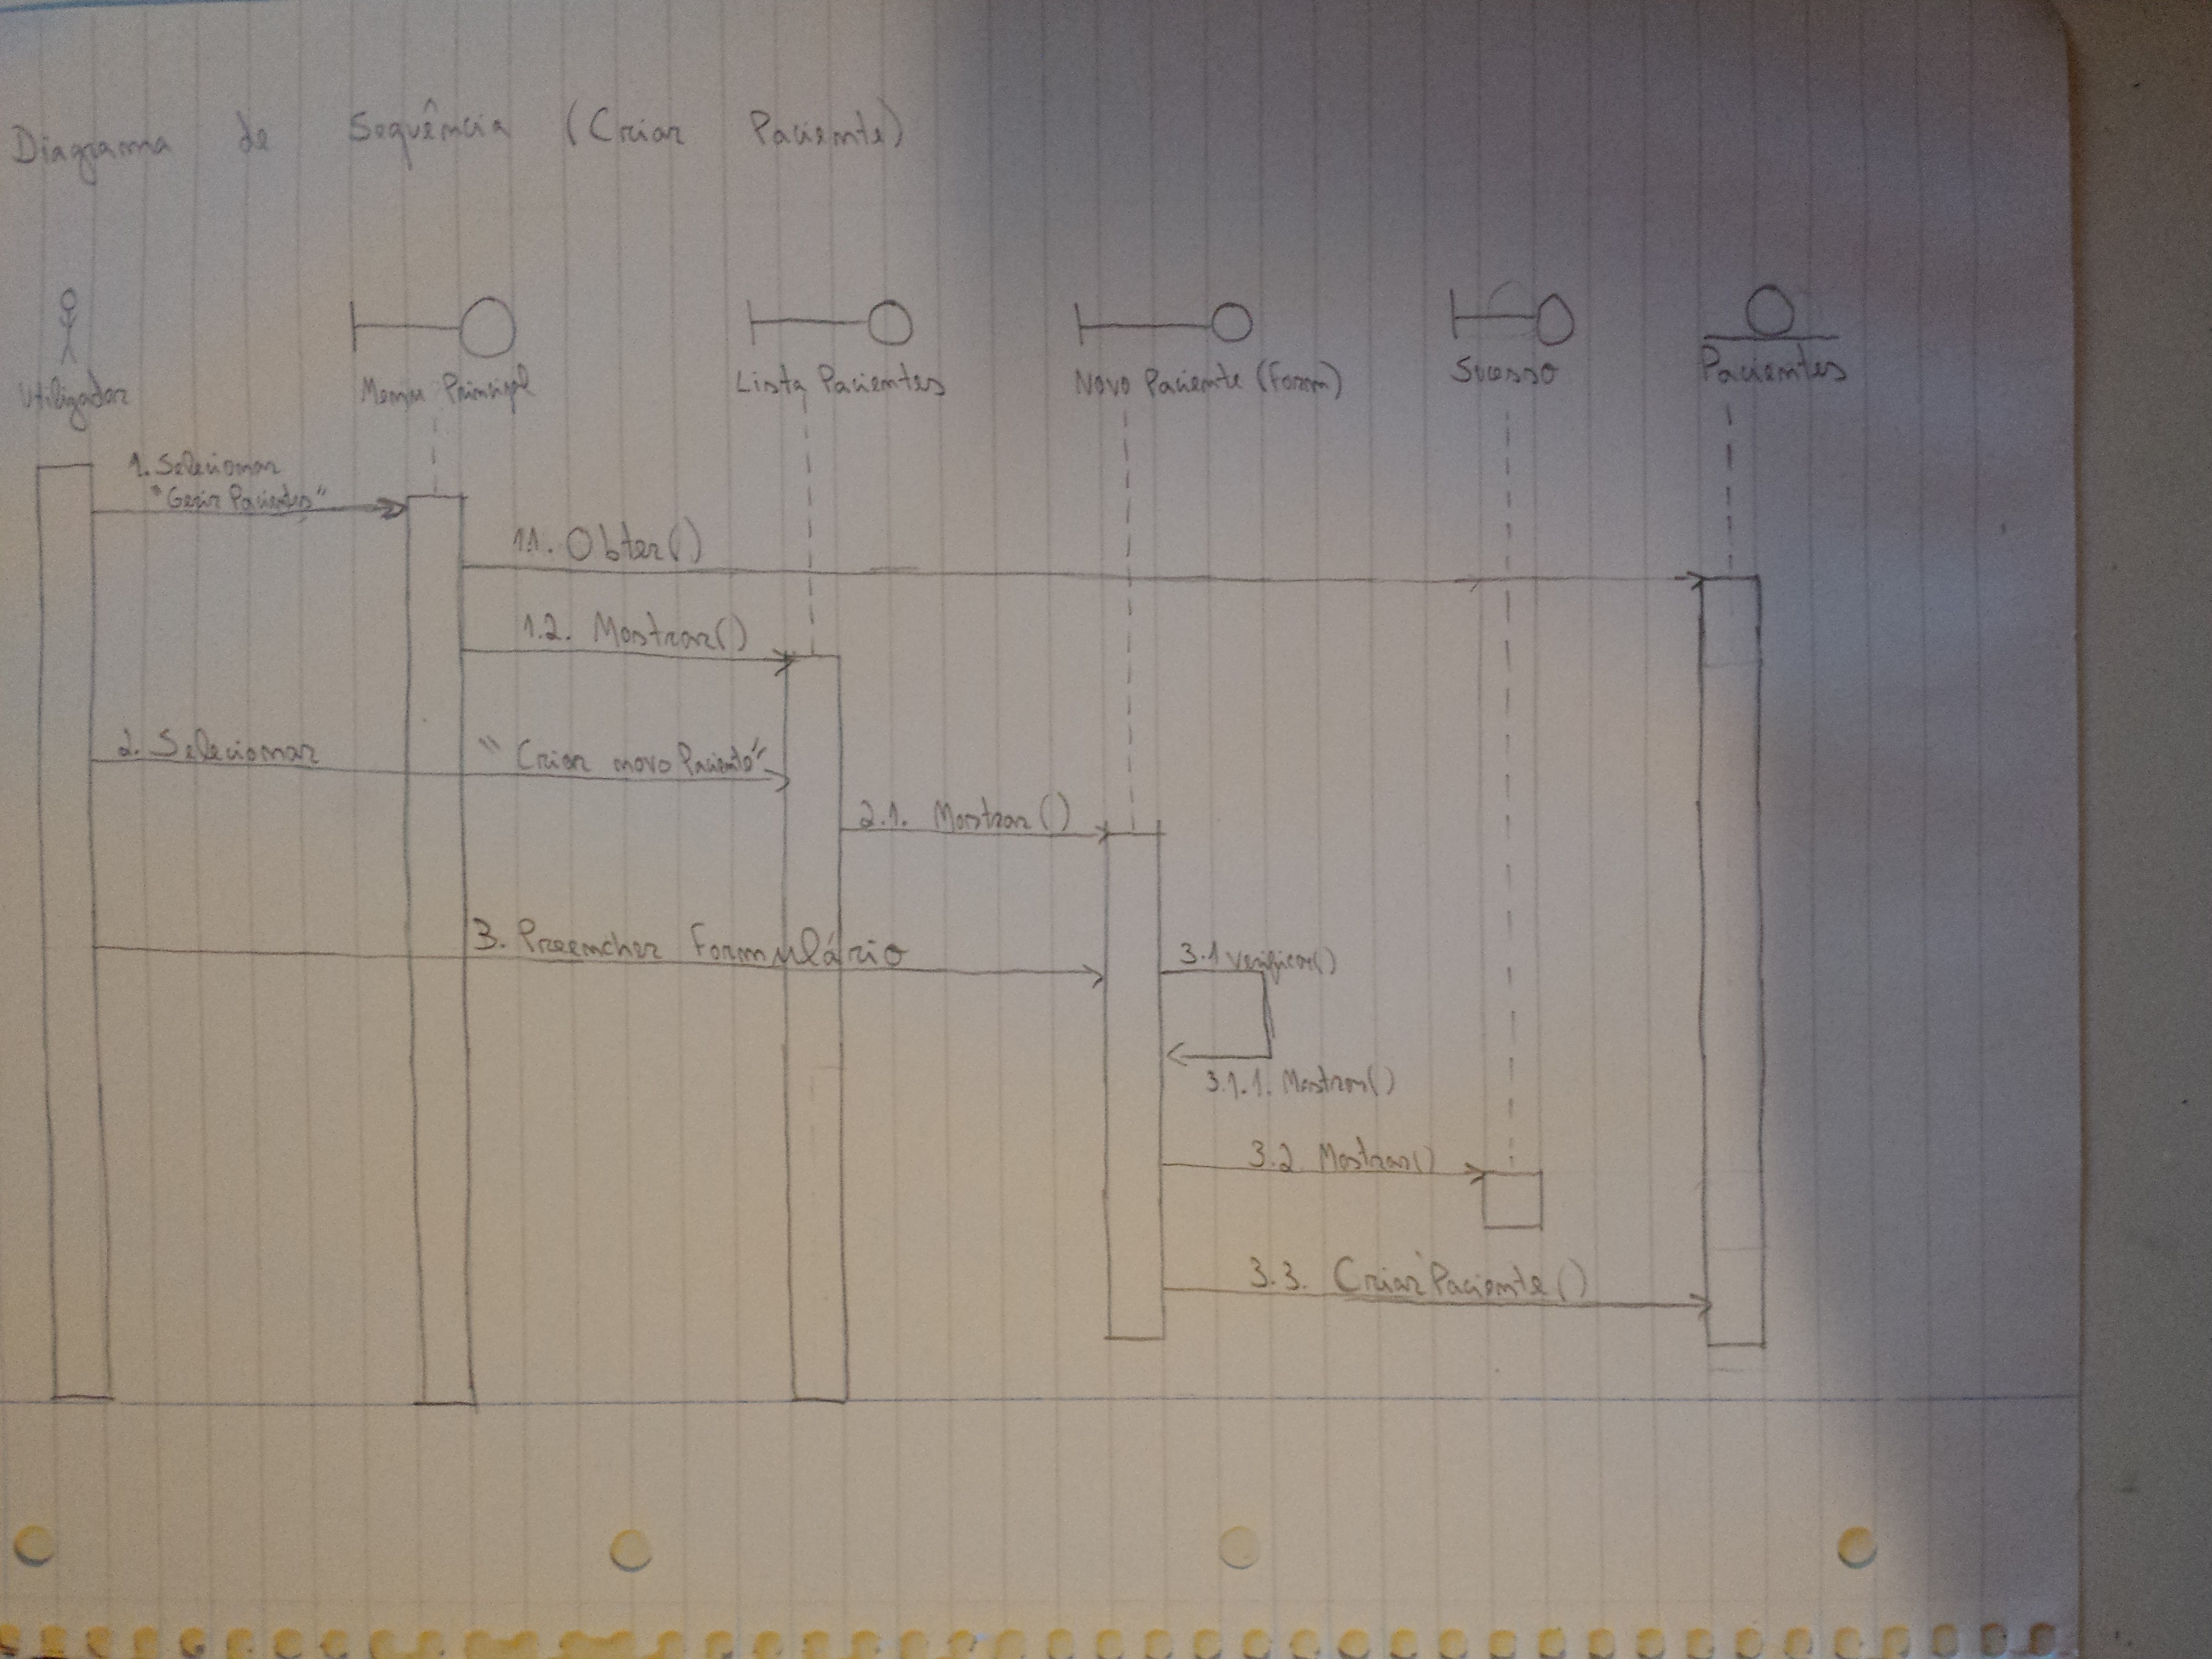 Diagrama de Sequência (Criar Paciente)
Utilizador
Menu Principal
Lista Pacientes
Novo Paciente (Form)
Sucesso
Pacientes
1. Selecionar
"Gerir Pacientes"
1.1. Obter()
1.2. Mostrar()
2. Selecionar "Criar novo Paciente"
2.1. Mostrar()
3. Preencher Formulário
3.1 verificar()
3.1.1. Mostrar()
3.2. Mostrar()
3.3. Criar Paciente()